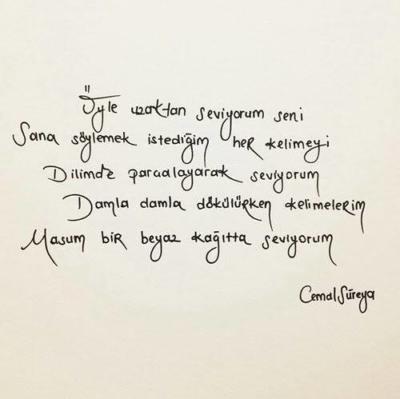 Öyle uzaktan seviyorum seni
Sana söylemek istediğim her kelimeyi
Dilimde parçalayarak seviyorum
Damla damla dökülürken kelimelerim
Masum bir beyaz kağıtta seviyorum
Cemal Süreya